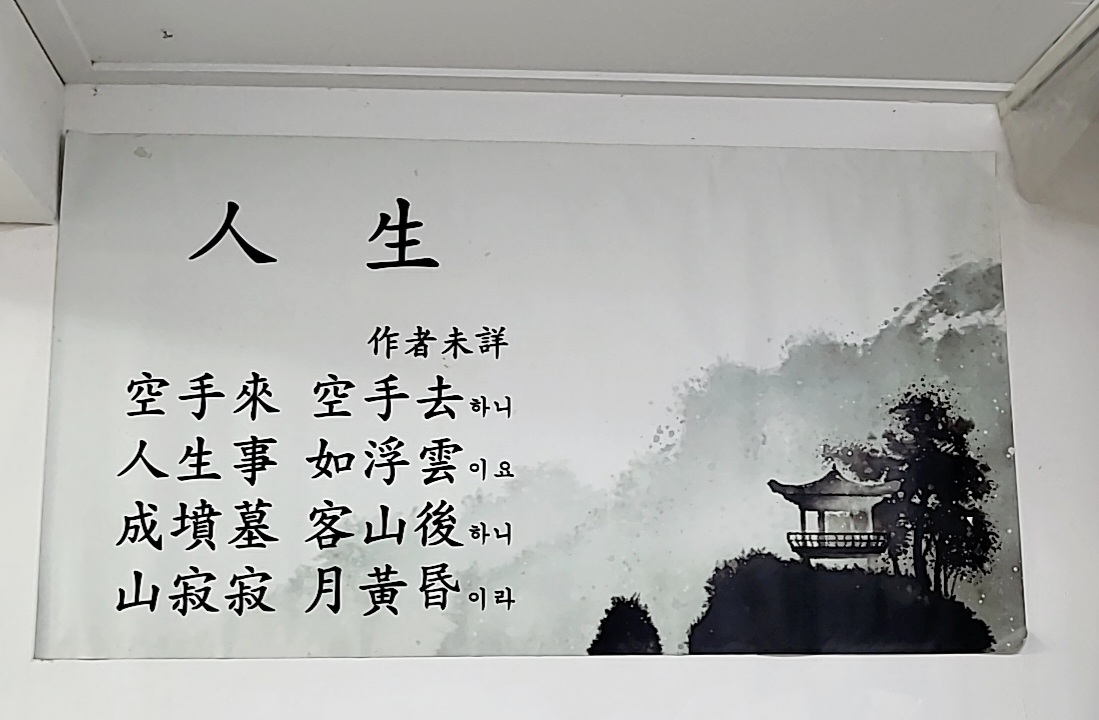 人 生
作者未詳
空手來 空手去하니
人生事 如浮雲이요
成墳墓 客山後하니
山寂寂 月黃昏이라